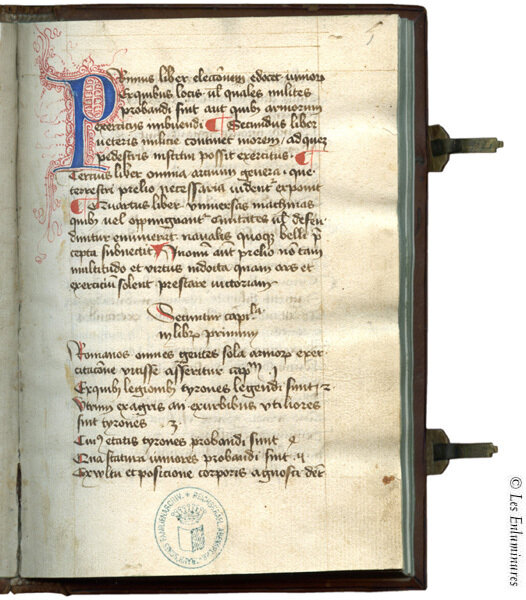 5
Primus liber electōnem edocet iuniorꝝ
Ex quibus locis vel quales milites
probandi sint aut quibꝫ armorum
exercicijs imbuendi ¶ Secundus liber
veteris milicie continet morem / ad quē
pedestris institui possit exercitus ¶
Tercius liber omnia artium genera / que
terrestri prelio necessaria vident͛ exponit
¶ Quartus liber vniuersas machinas
quibꝫ vel oppugnant͛ Ciuitates vel defen
dunt͛ enumerat . naualis quoque belli p̄
cepta subnectit In omī aūt prelio nō tam
multitudo et virtus indocta quam ars et
exerciciū solent prestare victoriam
Secuntur capitula
in librum primum
Romanos omnes gentes sola armorꝝ exer
citacōne vicisse asseritur cap̄m 1
Ex quibꝫ legionibꝫ tyrones legendi sint 2
Vtrum ex agris an ex vrbibus vtiliores
sint tyrones 3
Cuiꝰ etatis tyrones probandi sunt 4
Qua statura iuniores probandi sint 5
Ex vltu et posicione corporis agnosci debēt
FAMILIENARCHIV
© Les Enluminures